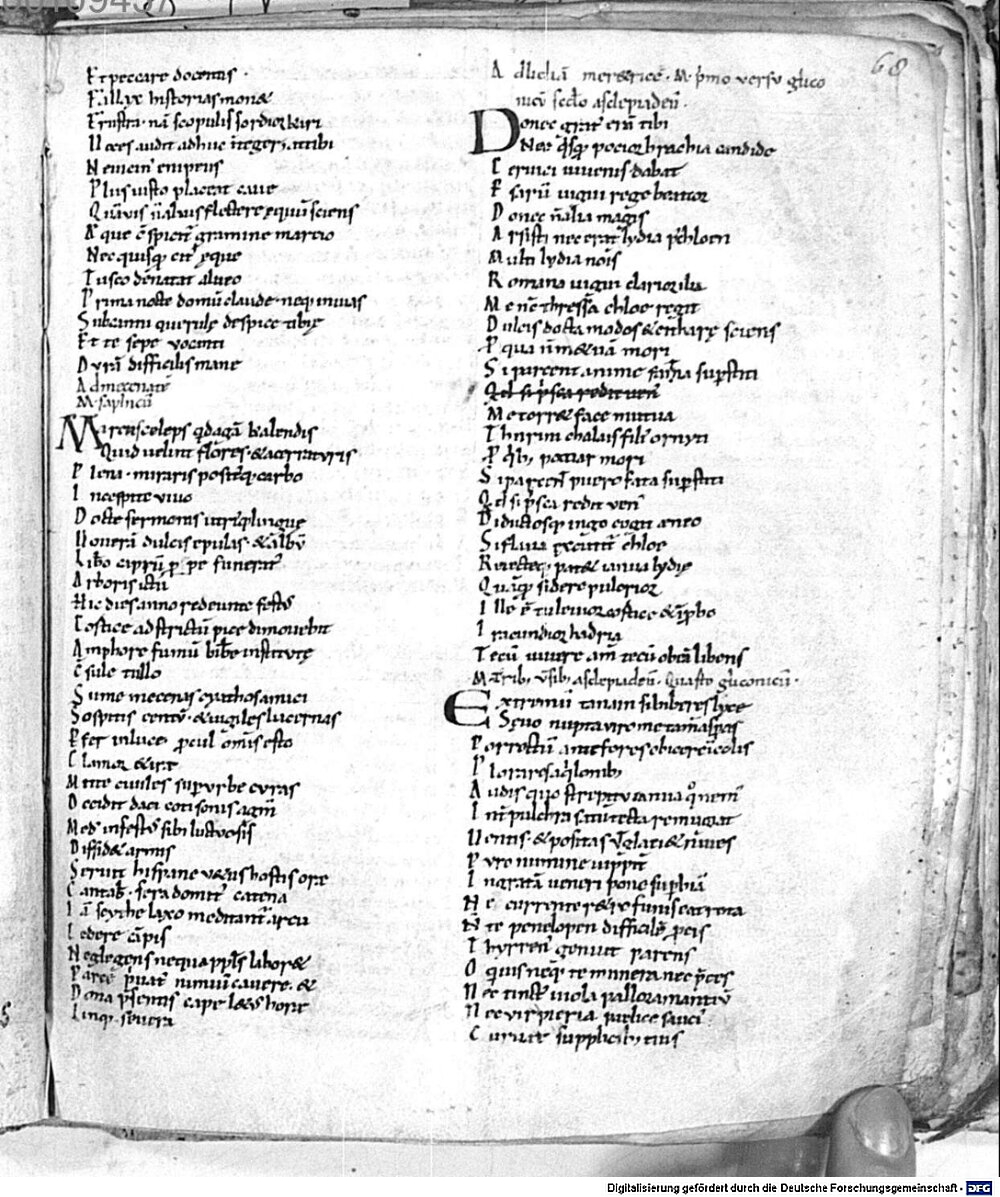 Et peccare docentis ·
Fallax historias monet
Frustra · nā scopulis surdior icari
Uoces audit adhuc integer · at tibi
Ne uicin enipeus
Plus iusto placeat caue
Quāuis n alius flectere equū sciens
Aeque cspicit gramine martio
Nec quisq cit eque
Tusco denatat alueo
Prima nocte domū claude · neq in uias
Sub cantu querule despice tibie
Et te sepe uocanti
Durā difficilis mane
Ad mecenatē
M · saphicū
Martiis celeps qd agā kalendis
Quid uelint flores · & acerra turis
Plena · miraris positusq carbo
In cespite uiuo
Docte sermones utriq lingue
Uouerā dulcis epulas · & albū
Libo caprū ppe funerat
Arboris ictu
Hic dies anno redeunte festus
Cortice adstrictū pice dimouebit
Amphore fumū bibere institute
Csule tullo
Sume mecenas cyathos amici
Sospitis centū · & uigiles lucernas
Pfer in lucē · pcul omis esto
Clamor & ira
Mitte ciuiles sup urbe curas
Occidit daci cotisonis agm
Med infestus sibi luctuosis
Dissidet armis
Seruit hispane uetus hostis ore
Cantab · sera domit catena
Iā scythe laxo meditant arcu
Cedere cāpis
Neglegens nequa ppls laboret
Parce puat nimiū cauere · &
Dona psentis cape letus hore
Linq · seuera
68
Ad lidiā meretricē · M · pmo uersu glico
nicū scdo asclepiadeū ·
Donec grat erā tibi
Nec qsq potior brachia candide
Ceruici iuuenis dabat
Psarū uigui rege beatior
Donec n alia magis
Arsisti nec erat lydia p chloen
Multi lydia nois
Romana uigui clarior ilia
Me nc thressa chloe regit
Dulcis docta modos & cithare sciens
P qua n metuā mori
Si parcent anime fata supstiti
Qd si psca redit uen
Me torret face mutua
Thurini chalais fili ornyti
P q bis patiar mori
Si parcent puero fata supstiti
Qd si psca redit uen
Diductosq iugo cogit aneo
Si flaua excutit chloe
Reiecteq patet ianua lydie
Quāq sidere pulcrior
Ille ē tu leuior cortice & ipbo
Iracundior hadria
Tecū uiuere amē tecū obeā libens
M · Trib · usib · asclepiadeū · quarto gliconicū ·
Extremū tanain si biberes lyce
Seuo nupta uiro me tam aspas
Porrectū ante fores obicere incolis
Plorares aqilonib
Audis quo strepitu ianua quo nem
Int pulchra satu tecta remugiat
Uentis · & positas ut glaciet niues
Puro numine iuppit
Ingratā ueneri pone supbiā
Ne currente retro funis eat rota
N te penelopen difficilē pcis
Thyrren genuit parens
O quis neq te munera nec pces
Nec tinct uiola pallor amantiū
Nec uir pieria pelice sauci
Curuat supplicib tuis
Digitalisierung gefördert durch die Deutsche Forschungsgemeinschaft - DFG